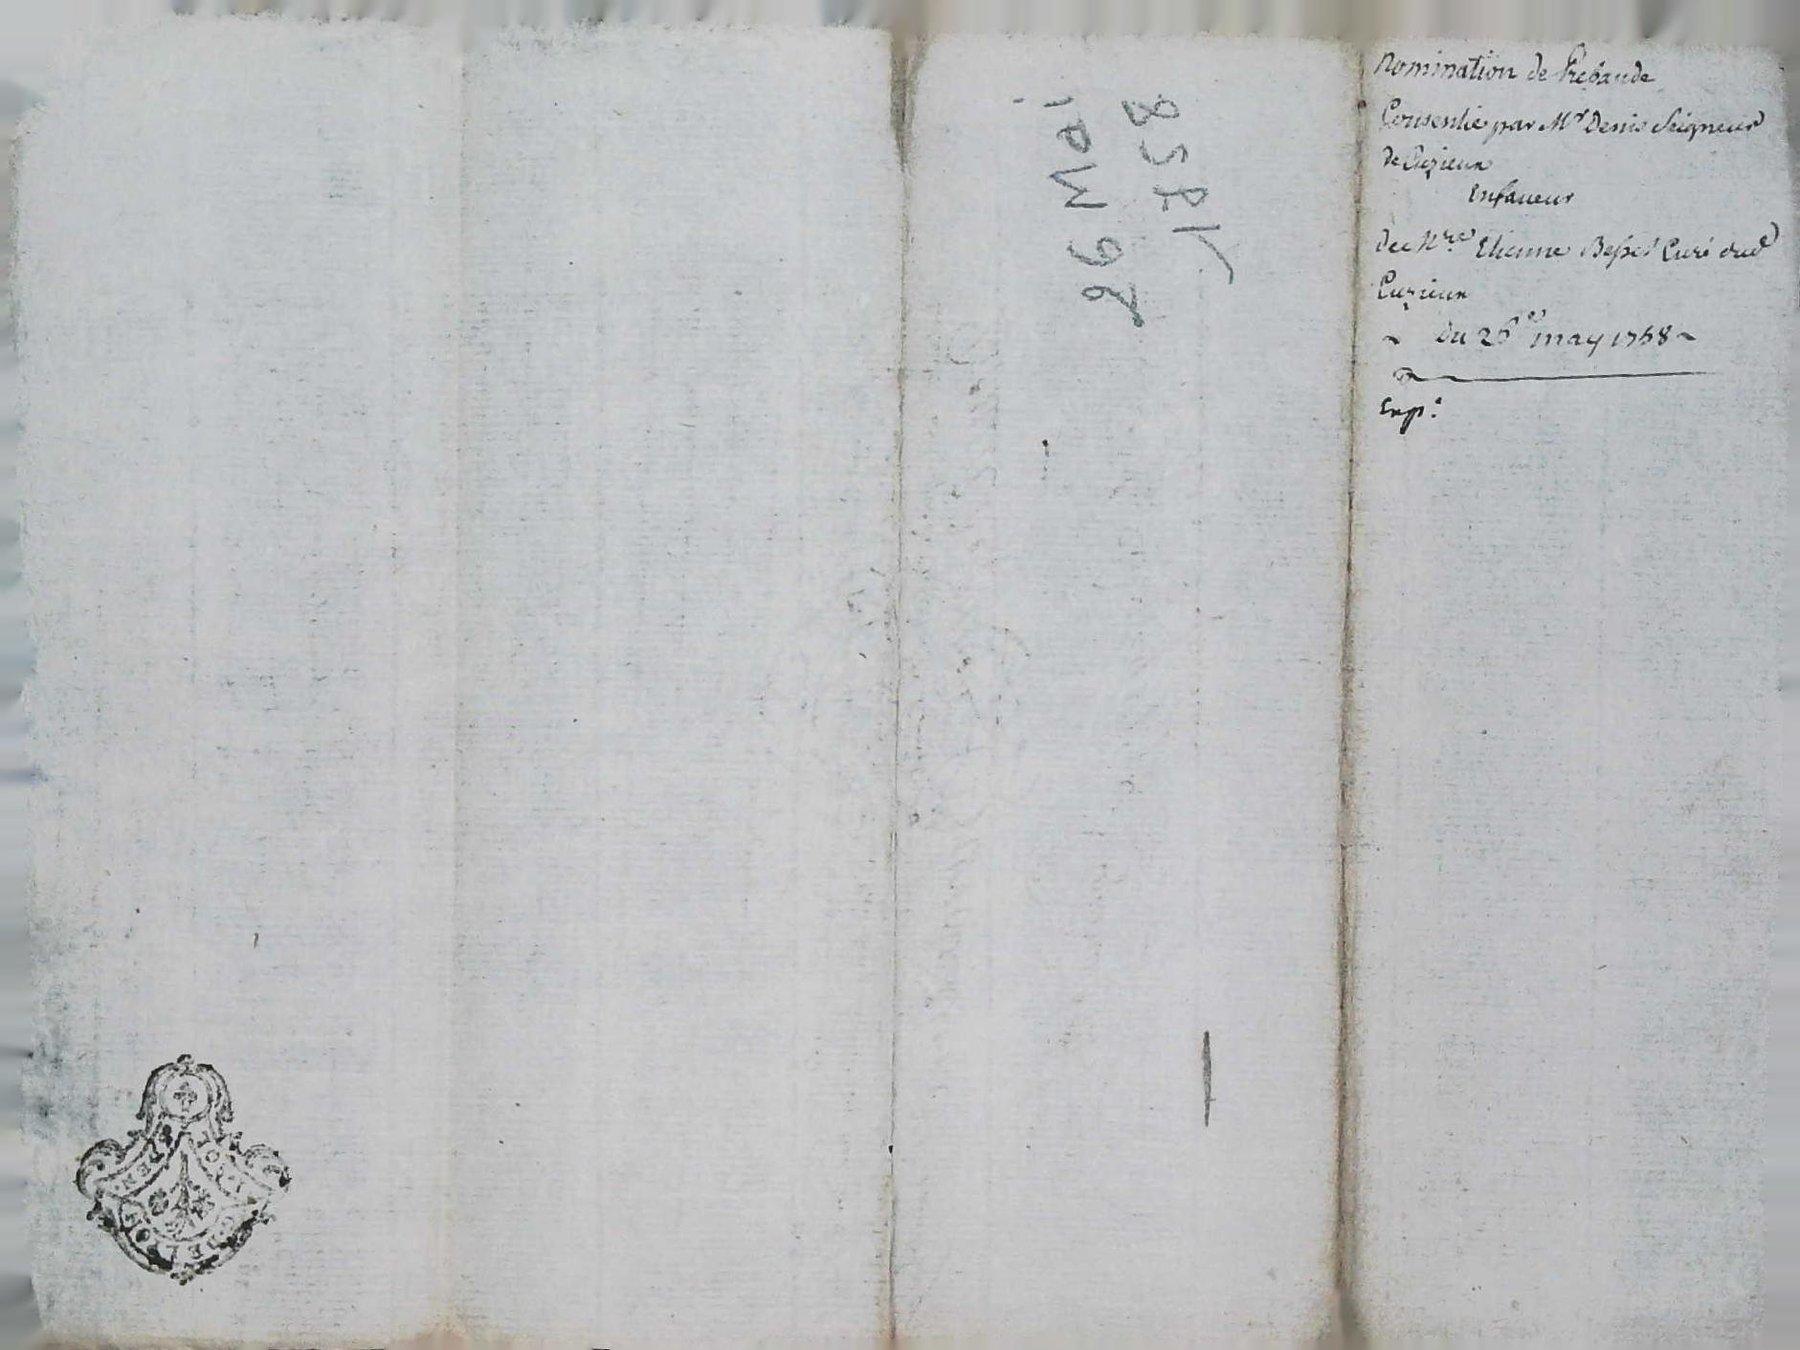 Nomination de Prébande
Consentie par Mr Denis Seigneur
de Cuzieux
Enfaveur
De Mre Etienne Besset Curé dud
Cuzieux
~ Du 26e may 1758 ~
Exp.
26 Mai
1758